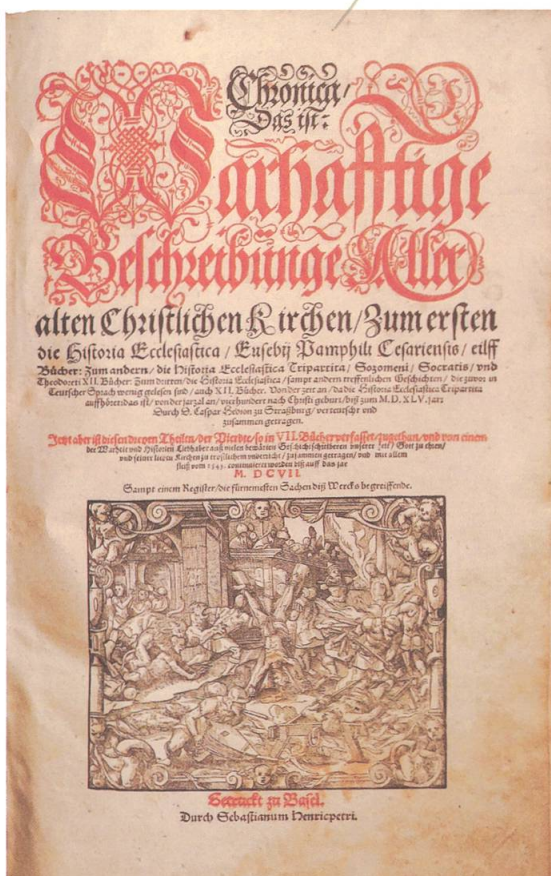 Chronica/
Das ist:
Warhafftige
Beschreibunge Aller
alten Christlichen Kirchen/Zum ersten
die Historia Ecclesiastica/ Eusebij Pamphili Cesariensis/ eilff
Bücher: Zum andern/ die Historia Ecclesiastica Tripartita/ Sozomeni/ Socratis/ vnd
Theodoreti XII. Bücher: Zum dritten/die Historia Ecclesiastica/ sampt andern treffenlichen Geschichten/ die zuvor in
Teutscher Sprach wenig gelesen sind/ auch XII. Bücher. Von der zeit an/ da die Historia Ecclesiastica Tripartita
auffhört: das ist/ von der jarzal an/ vierhundert nach Christi geburt/ biß zum M. D. XLV. jar:
Durch D. Caspar Hedion zu Straßburg/ verteutscht vnd
zusammen getragen.
Jetzt aber ist diesen dreyen Theilen/der Vierdte/so in VII. Bücher verfasset/zugethan/vnd von einem
der Warheit vnd Historien Liebhaber auß vielen bewärten Geschichtschreibern vnserer zeit/ Gott zu ehren/
vnd seiner lieben Kirchen zu trostlichem vnderricht/ zusammen getragen/ vnd mit allem
fleiß vom 1545. continuieret worden biß auff das jar
M. DCVII.
Sampt einem Register/die fürnemesten Sachen diß Wercks begreiffende.
Getruckt zu Basel.
Durch Sebastianum Henricpetri.